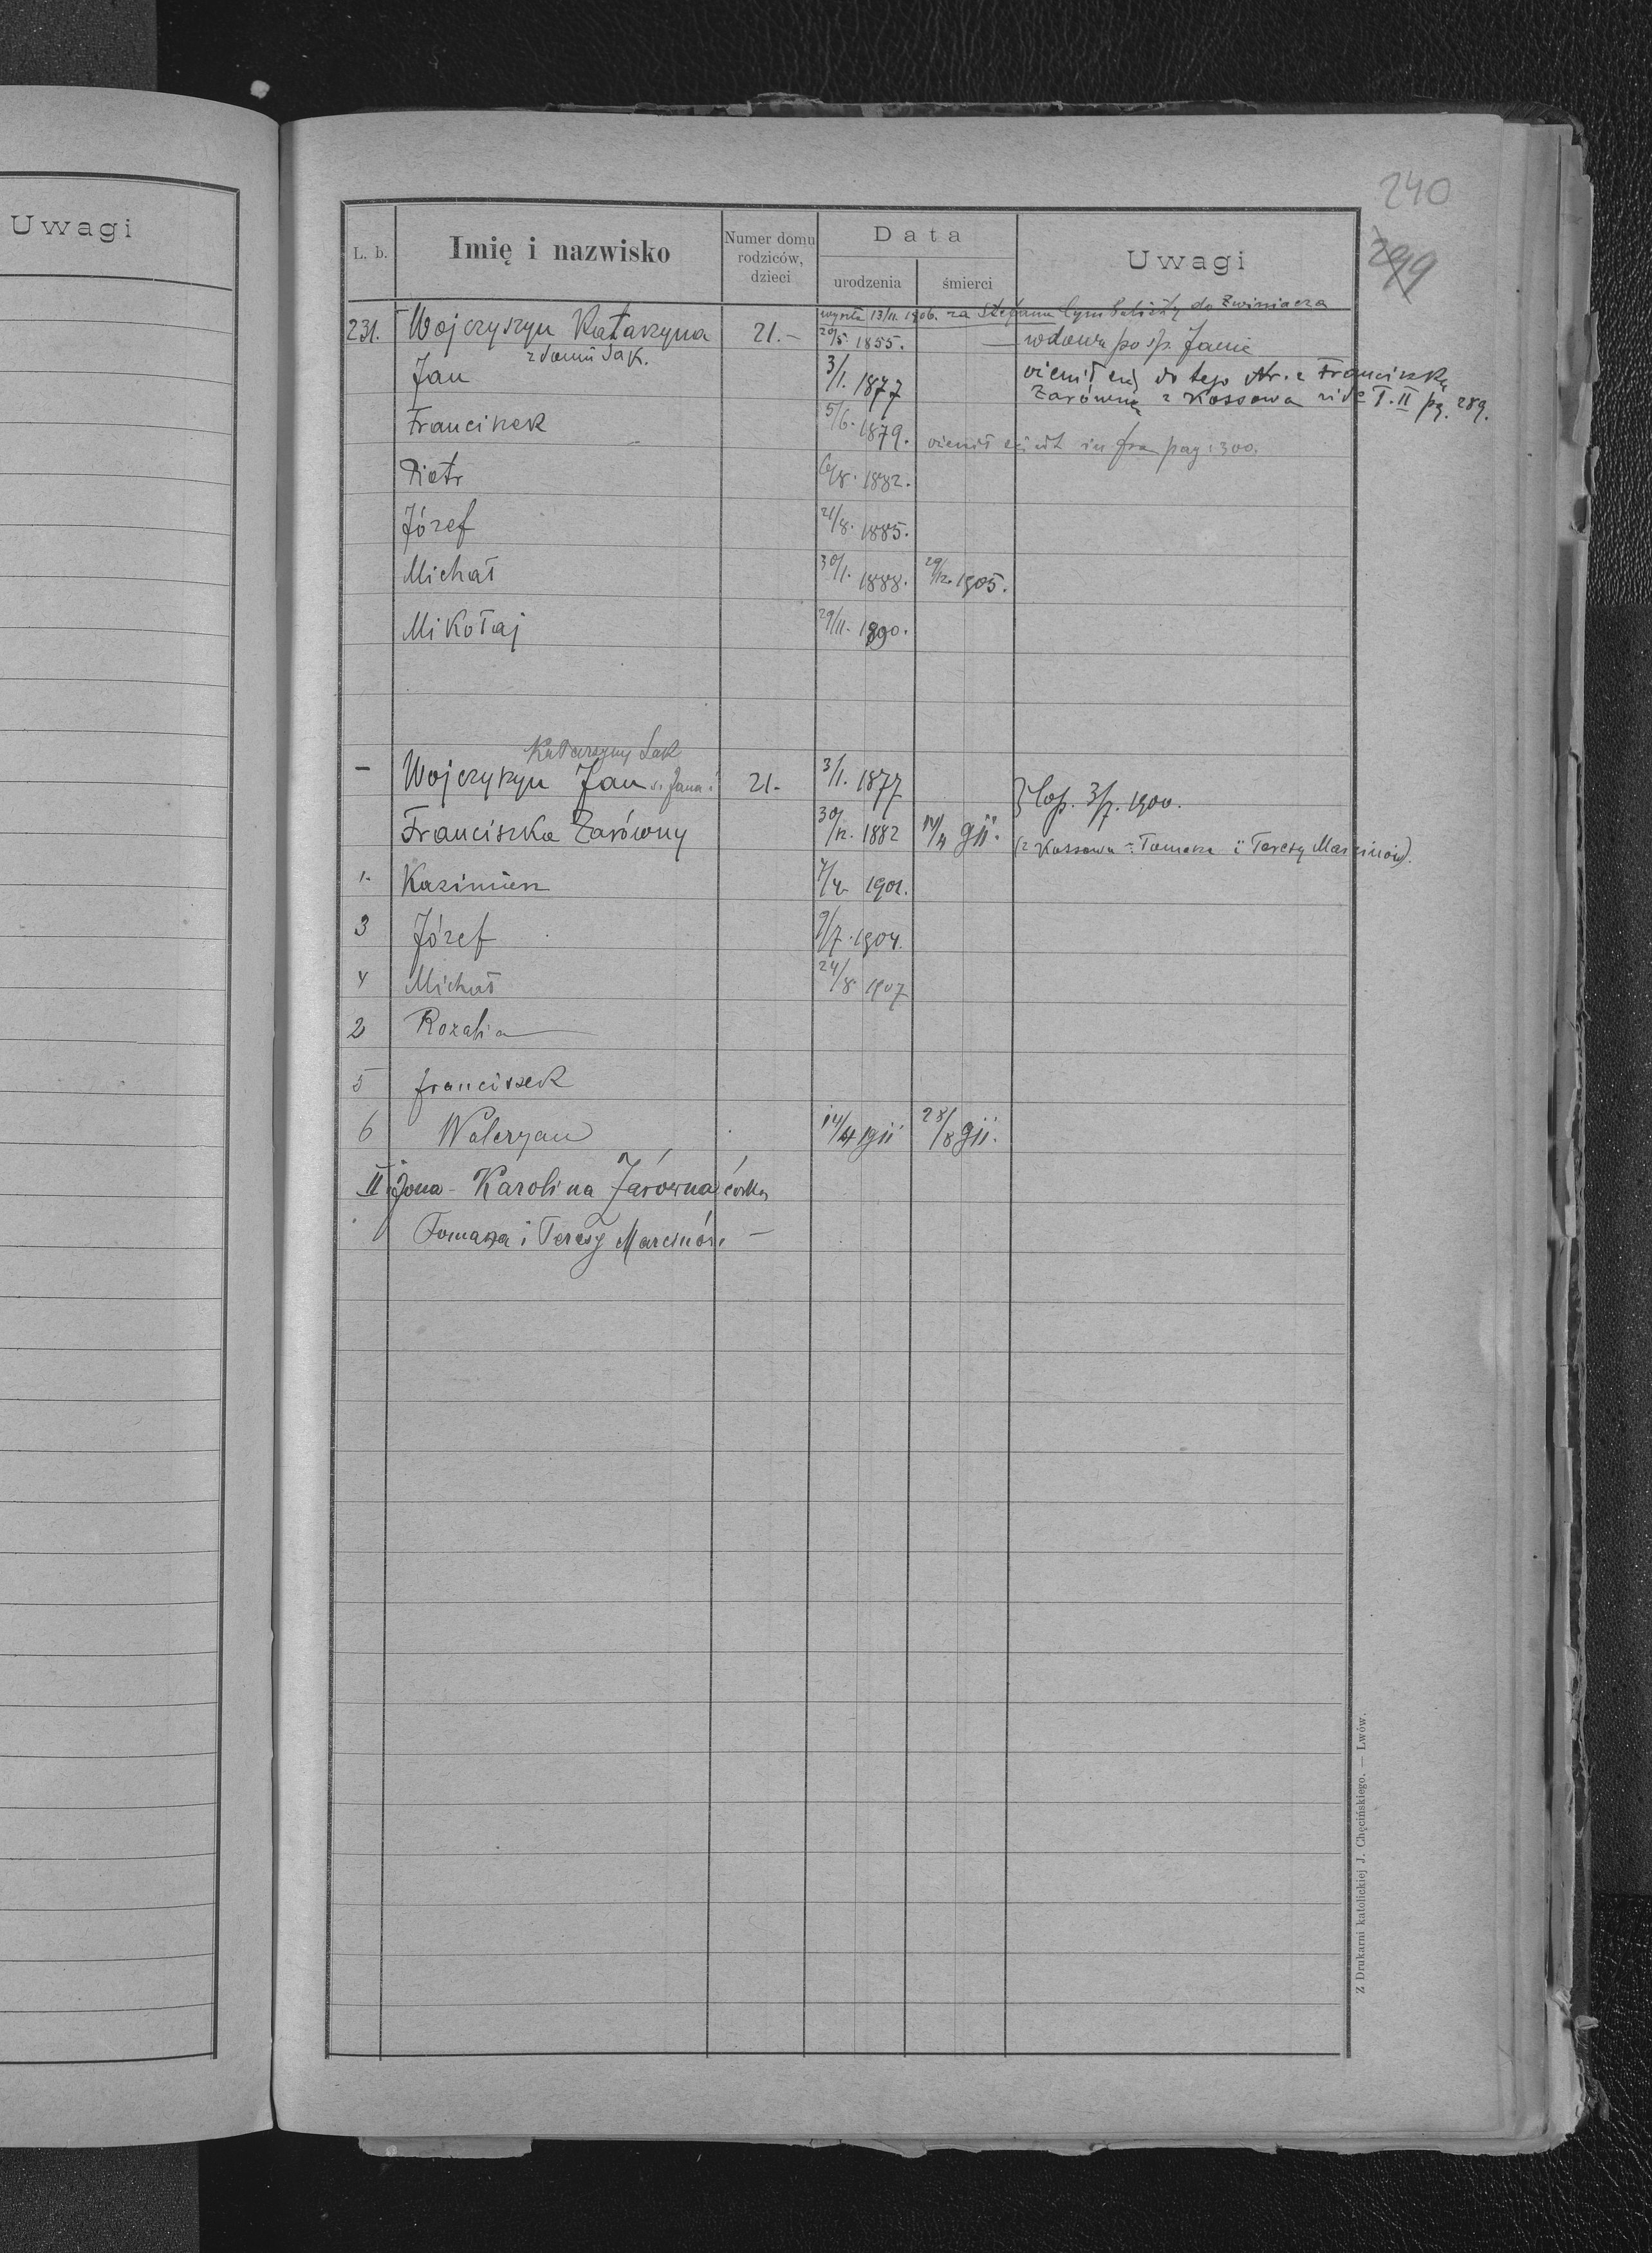 Uwagi
240
299
L. b.
Imię i nazwisko
Numer domu rodziców, dzieci
Data
urodzenia
śmierci
Uwagi
wyszła 13/11. 1906. za Stefana do Zwiniacza
231. Wojczyszyn Katarzyna 21.- 20/5. 1855. — wdowa po śp. Janie
z domu Sak.
Jan 3/1. 1877 ożenił się do tego Nr. z Franciszką
Zarówną z Kossowa vide T. II pg. 289.
Franciszek 5/6. 1879. ożenił się vit infra pag. 300.
Piotr 6/8. 1882.
Józef 21/8. 1885.
Michał 30/1. 1888. 29/12. 1905.
Mikołaj 29/11. 1890.
Katarzyny Sak
- Wojczyszyn Jan s. Jana i 21. 3/1. 1877
} Cop. 3/7. 1900.
Franciszka Zarówny 30/12. 1882 14/4 911.
(z Kossowa - Tomasza i Teresy Marcinów).
1. Kazimierz 4/4. 1901.
3 Józef 9/7. 1904.
4 Michał 24/8 1907
2 Rozalia
5 franciszek
6 Waleryan 14/4 1911 28/8 911.
II żona - Karolina Zarówna córka
Tomasza i Teresy Marcinów —
Z Drukarni katolickiej J. Chęcińskiego. — Lwów.